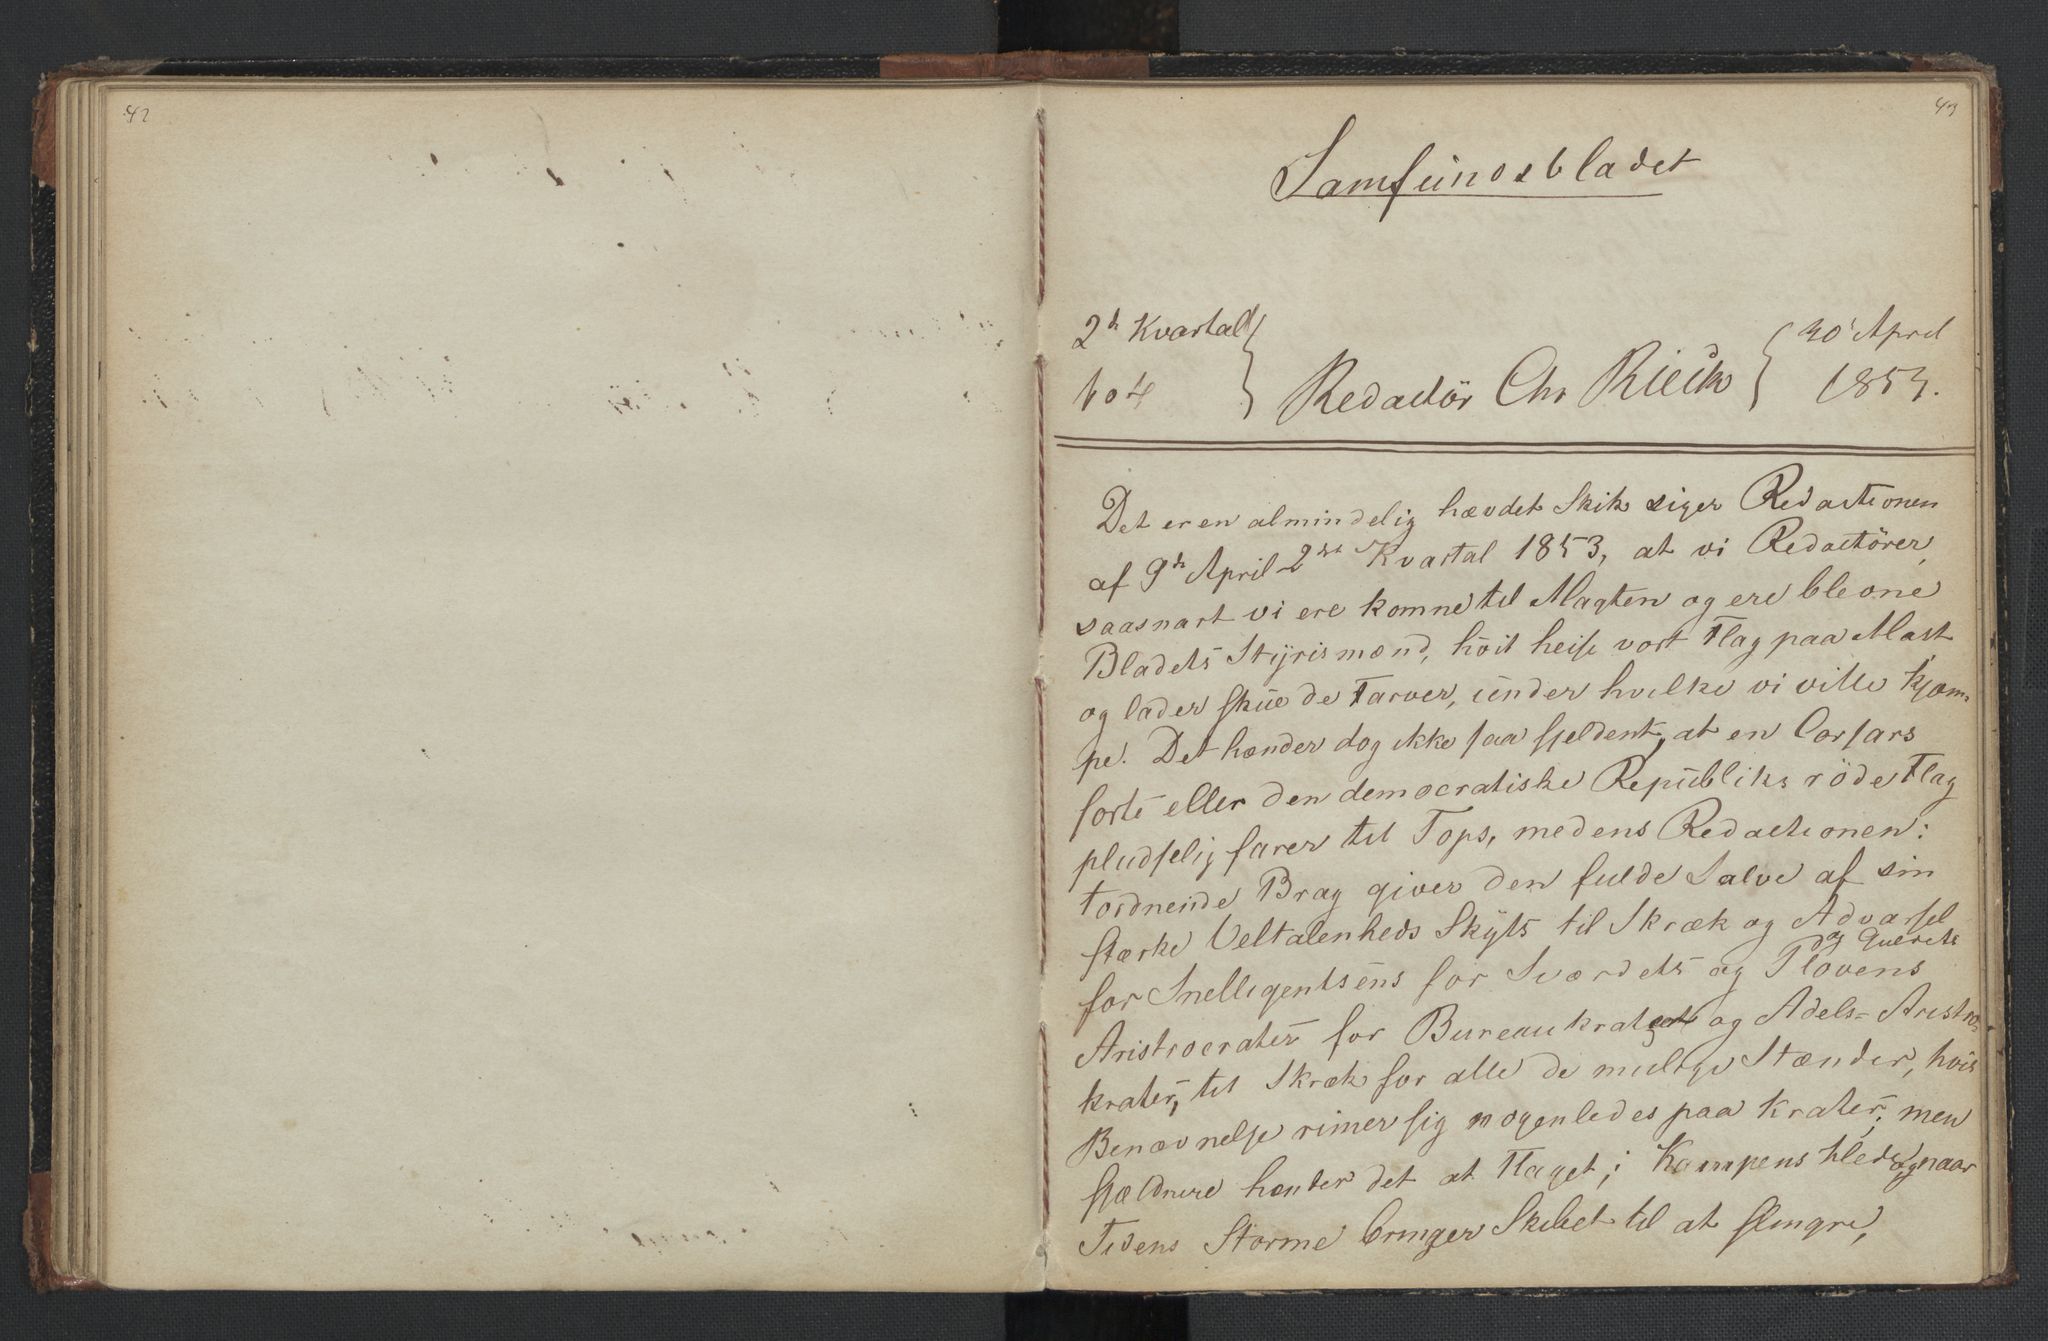 42
43
Samfundsbladet
2d Kvartal
30 April
No 4
Redactör Chr
1853.
Det er en almindelig hævdet Skik siger Redactionen
af 9de April 2det Kvartal 1853, at vi Redactörer,
saasnart vi ere komne til Magten og ere blevne
Bladets Styrismænd, höit heise vort Flag paa Mast
og lader skue de Farver, under hvilke vi ville kjæm-
pe. Det hænder dog ikke saa sjeldent, at en Corsars
sorte eller den democratiske Republiks röde Flag
pludselig farer til Tops, medens Redactionen:
tordnende Brag giver den fulde Salve af sin
stærke Veltalenheds Skyts til Skræk og Advarsel
for Inelligentsens for Sværdets og Plovens
Aristocrater for Bureaukrat og Adels-Aristo-
krater, til Skræk for alle de mulige Stænder, hvis
Benævnelse rimer sig nogenledes paa krater; men
sjældnere hænder det at Flaget, i Kampens Hede og naar
Tidens Storme bringer Skibet til at slingre,